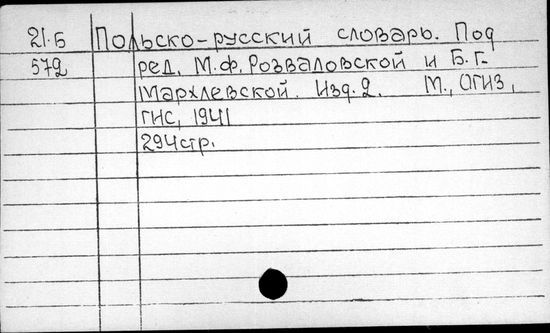 21.Б Польско-русский словарь. Под
572 ред. М.Ф. Розваловской и Б.Г.
Мархлевской. Изд. 2. М., ОГИЗ,
ГИС, 1941
294стр.